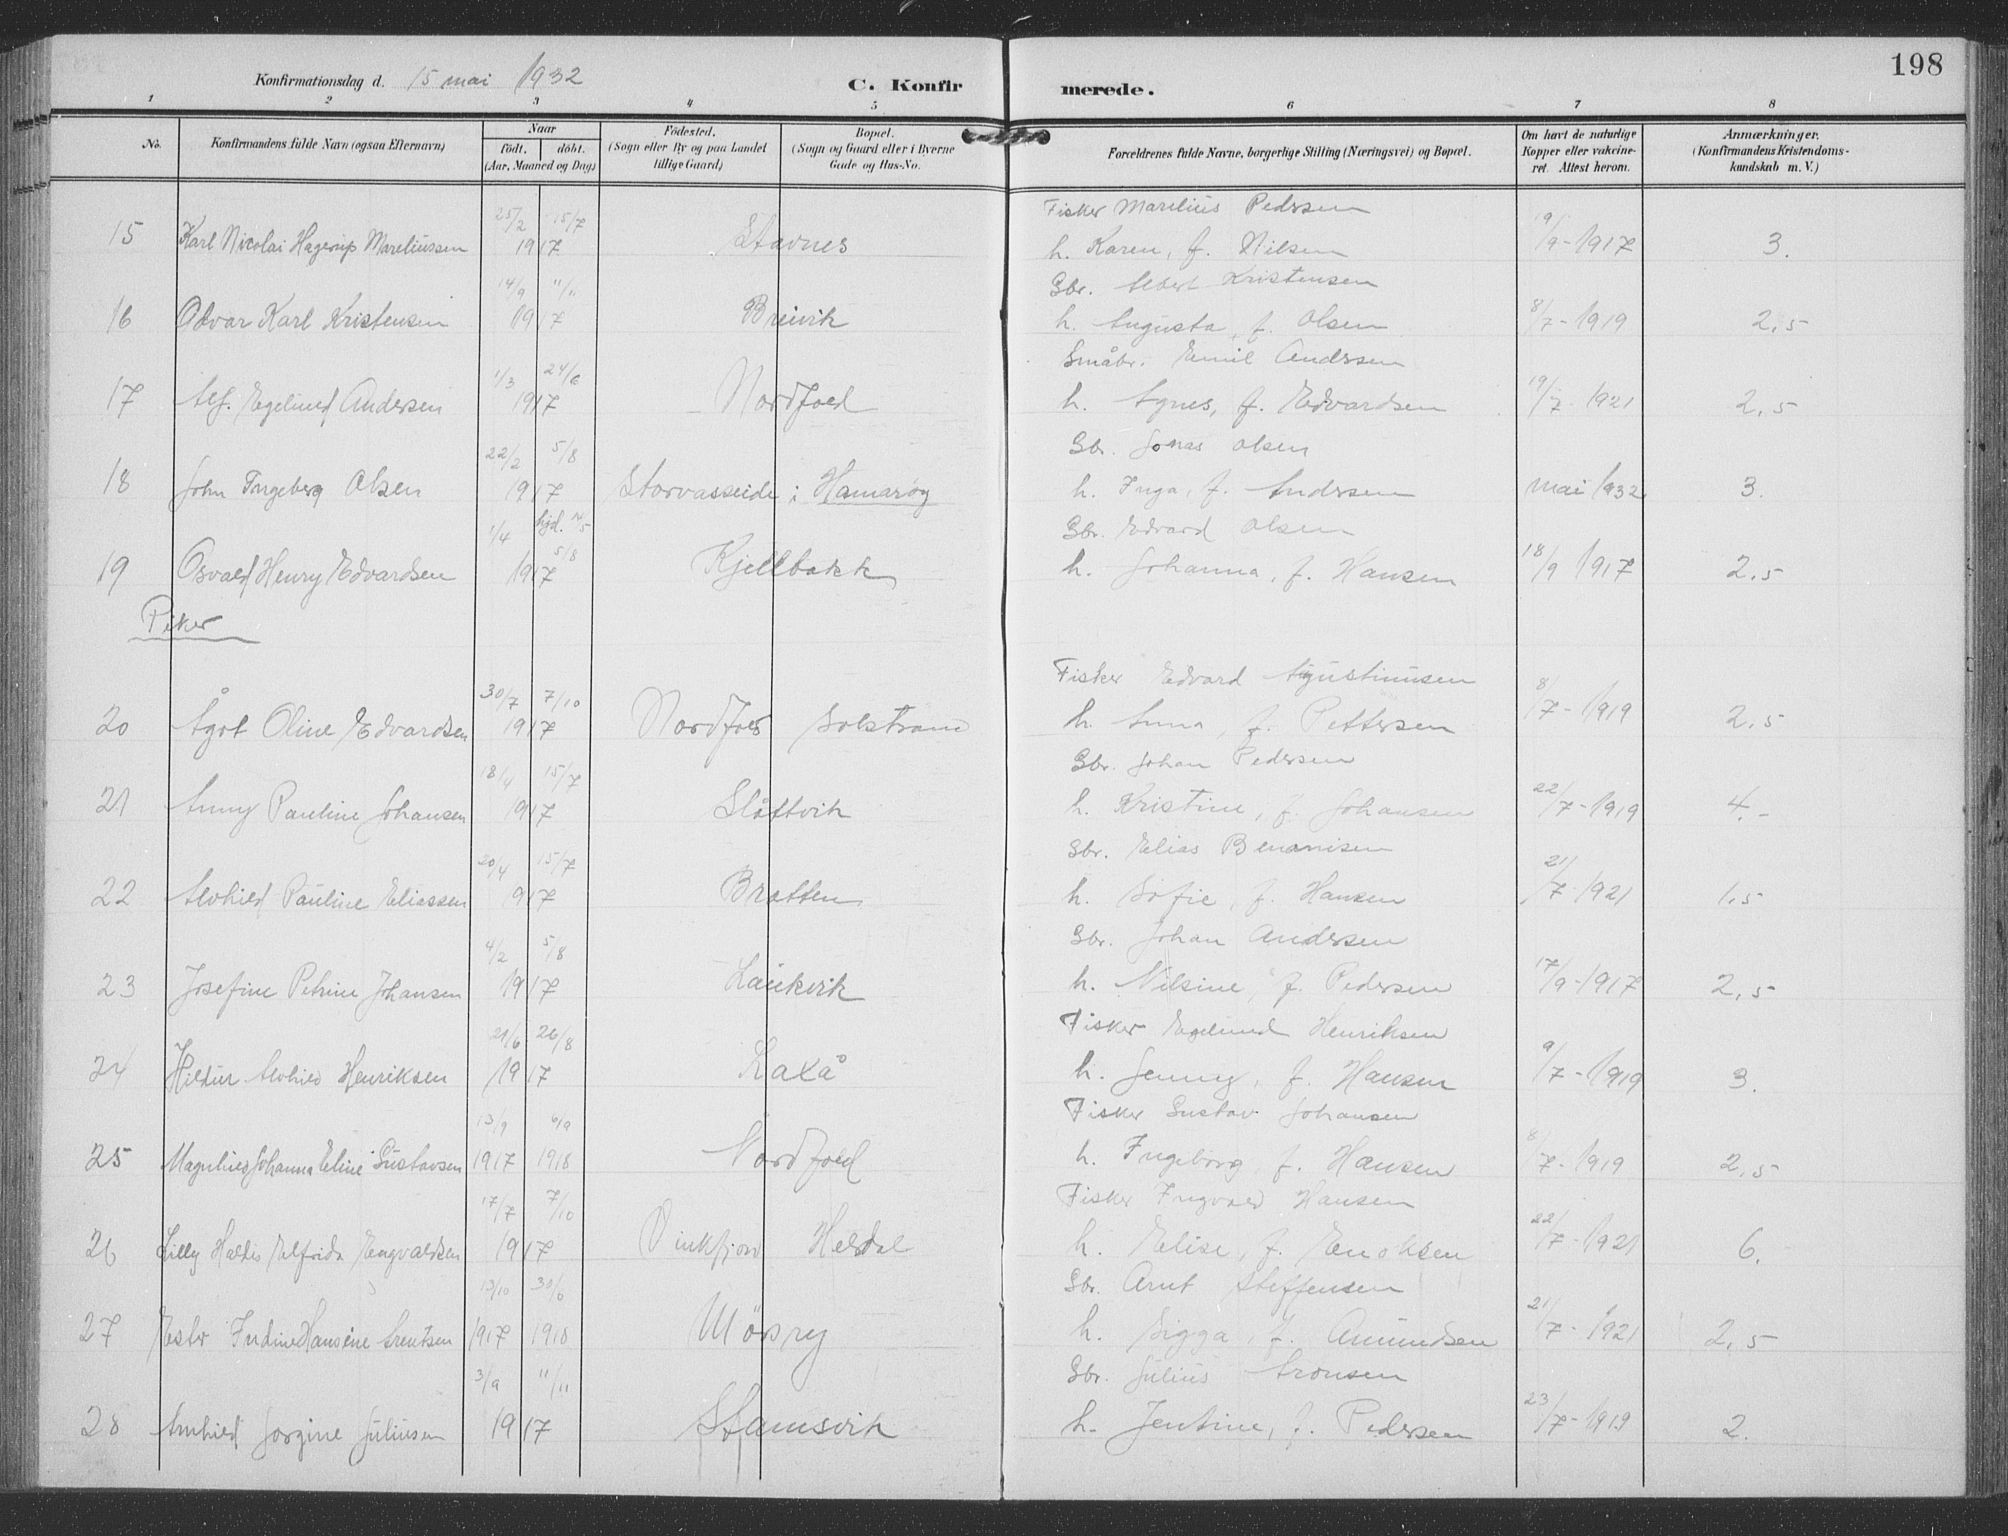 198
Konfirmationsdag d. 15 mai 1932
C. Konfirmerede.
1 2 3 4 5 6 7 8
No.
Konfirmandens fulde Navn (ogsaa Efternavn)
Naar
født. døbt.
(Aar, Maaned og Dag)
Fødested.
(Sogn eller By og paa Landet
tillige Gaard)
Bopæl.
(Sogn og Gaard eller i Byerne
Gade og Hus-No.
Forældrenes fulde Navne, borgerlige Stilling (Næringsvei) og Bopæl.
Om havt de naturlige
Kopper eller vakcine-
ret. Attest herom.
Anmærkninger.
(Konfirmandens Kristendoms-
kundskab m. V.)
25/2 15/7 Fisker Marelius Pedersen 19
15 Karl Nicolai Hagerup Mareliussen 1917 Stavnes h. Karen, f. Nilsen /9-1917 3.
14/9 11/11 Gbr. Albert Kristensen
16 Odvar Karl Kristensen 1917 Breivik h. Augusta, f. Olsen 8/7-1919 2,5
1/3 24/6 Småbr. Emil Andersen
17 Alf. Egelund Andersen 1917 Nordfold h. Agnes, f. Edvardsen 19/7-1921 2,5
22/2 5/8 Gbr. Jonas Olsen
18 John Ingeberg Olsen 1917 Storvasseide i Hamarøy h. Inga, f. Andersen mai 1932 3.
1/4 hjd. 14/5 5/8 Gbr. Edvard Olsen
19 Osvald Henry Edvardsen 1917 Kjellbakk h. Johanna, f. Hansen 18/9 1917 2,5
Piker
30/7 7/10 Fisker Edvard Agustinusen 8/
20 Ågot Oline Edvardsen 1917 Nordfold Solstrand h. Anna, f. Pettersen 7-1919 2,5
18/4 15/7 Gbr. Johan Pedersen
21 Anny Pauline Johansen 1917 Slåttvik h. Kristine, f. Johansen 22/7-1919 4.-
20/4 15/7 Gbr. Elias Benonisen 21/
22 Alvhild Pauline Eliassen 1917 Bratten h. Sofie, f. Hansen 7-1921 1,5
4/2 5/8 Gbr. Johan Andersen
23 Josefine Petrine Johansen 1917 Laukvik h. Nilsine, f. Pedersen 17/9-1917 2,5
21/6 26/8 Fisker Egelund Henriksen
24 Hildur Alvhild Henriksen 1917 Laxå h. Jenny, f. Hansen 9/7-1919 3.
13/9 6/9 Fisker Gustav Johansen
25 Johanna Eline Gustavsen 1917 1918 Nordfold h. Ingeborg, f. Hansen 8/7-1919 2,5
17/7 7/10 Fisker Ingvald Hansen
26 Lilly Haldis Elfrida Engvaldsen 1917 Vinkfjord Heldal h. Elise, f. Enoksen 22/7-1921 6.
13/10 30/6 Gbr. Arnt Steffensen
27 Ester Indine Hansine Arentsen 1917 1918 Mösry h. Sigga, f. Amundsen 21/7-1921 2,5
3/9 11/11 Gbr. Julius Aronsen
28 Arnhild Jorgine Juliusen 1917 Stamsvik h. Jentine, f. Pedersen 23/7-1919 2.